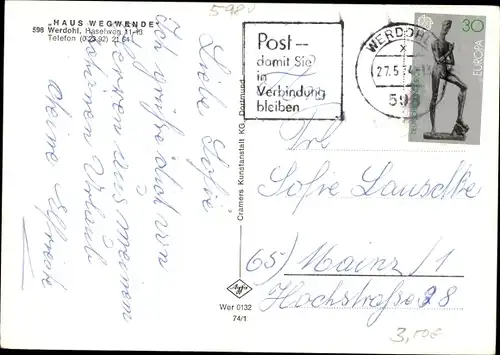 598
„HAUS WEGWENDE"
598 Werdohl, Haselweg 11-13
Telefon (0 23 92) 21 64
Liebe Sofie
Ich grüße dich von
Herzen aus meinem
Urlaub
Deine Elfriede
Cramers Kunstanstalt KG, Dortmund
Agfa
Wer 0132
74/1
Post –
damit Sie
in
Verbindung
bleiben
WERDOHL
27.5.74
598
30
EUROPA
Frl
Sofie Lauschke
65) Mainz/1
Hochstraße 28
3,50€